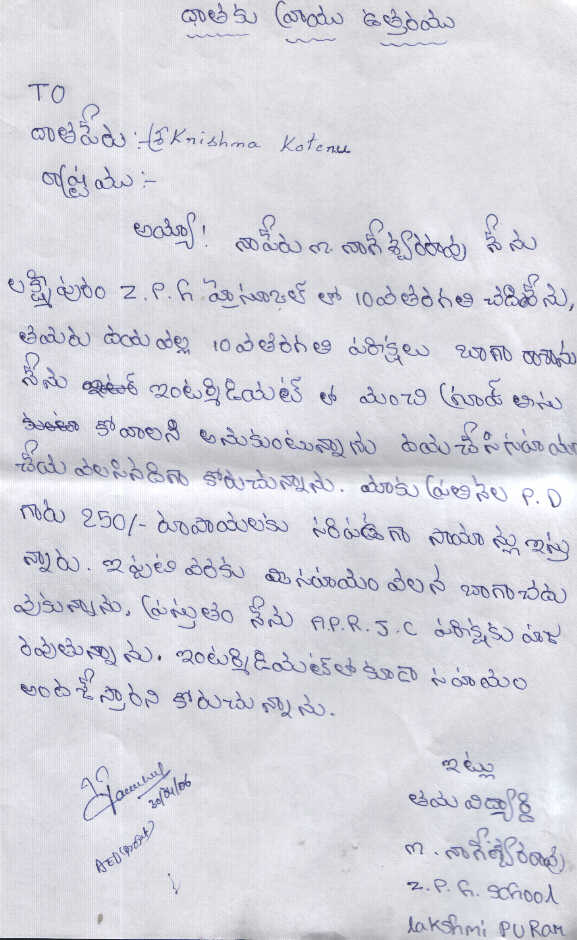 దాతకు వ్రాయు ఉత్తరము
TO
దాతపేరు :- శ్రీ Krishna Koteru
రాష్ట్రము :-
అయ్యా! నాపేరు m. నాగేశ్వరరావు నేను
లక్ష్మీపురం Z.P.h. హైస్కూల్ లో 10వతరగతి చదివేను,
తమరు దయవల్ల 10వతరగతి పరిక్షలు బాగా రాశాను
నేను ఇంటర్మీడియట్ లో మంచి గ్రూప్ తీసు
కోవాలని అనుకుంటున్నాను దయచేసి సహయం
చేయవలసినదిగా కోరుచున్నాను. మాకు ప్రతినెల P.D
గారు 250/- రూపాయలకు సరిపడగా సామాన్లు ఇస్తు
న్నారు. ఇప్పటి వరకు మీసహయం వలన బాగాచదు
వుకున్నాను, ప్రస్తుతం నేను A.P.R.J.C పరిక్షకు హాజ
రవుతున్నాను. ఇంటర్మీడియట్‌లో కూడా సహయం
అందజేస్తారని కోరుచున్నాను.
ఇట్లు
తమవిద్యార్థి
m. నాగేశ్వరరావు
Z.P.h. School
lakshmi PURam
30/04/06